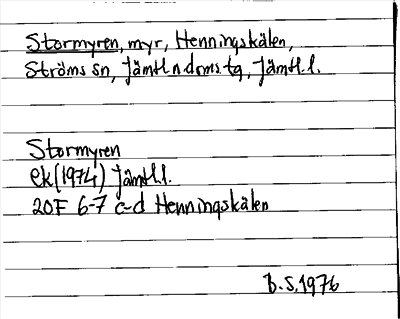 Stormyren, myr, Henningskälen,
Ströms sn, Jämtl. n. doms. tg, Jämtl. l.
Stormyren
ek (1974) Jämtl. l.
20F 6-7 c-d Henningskälen
B.S. 1976